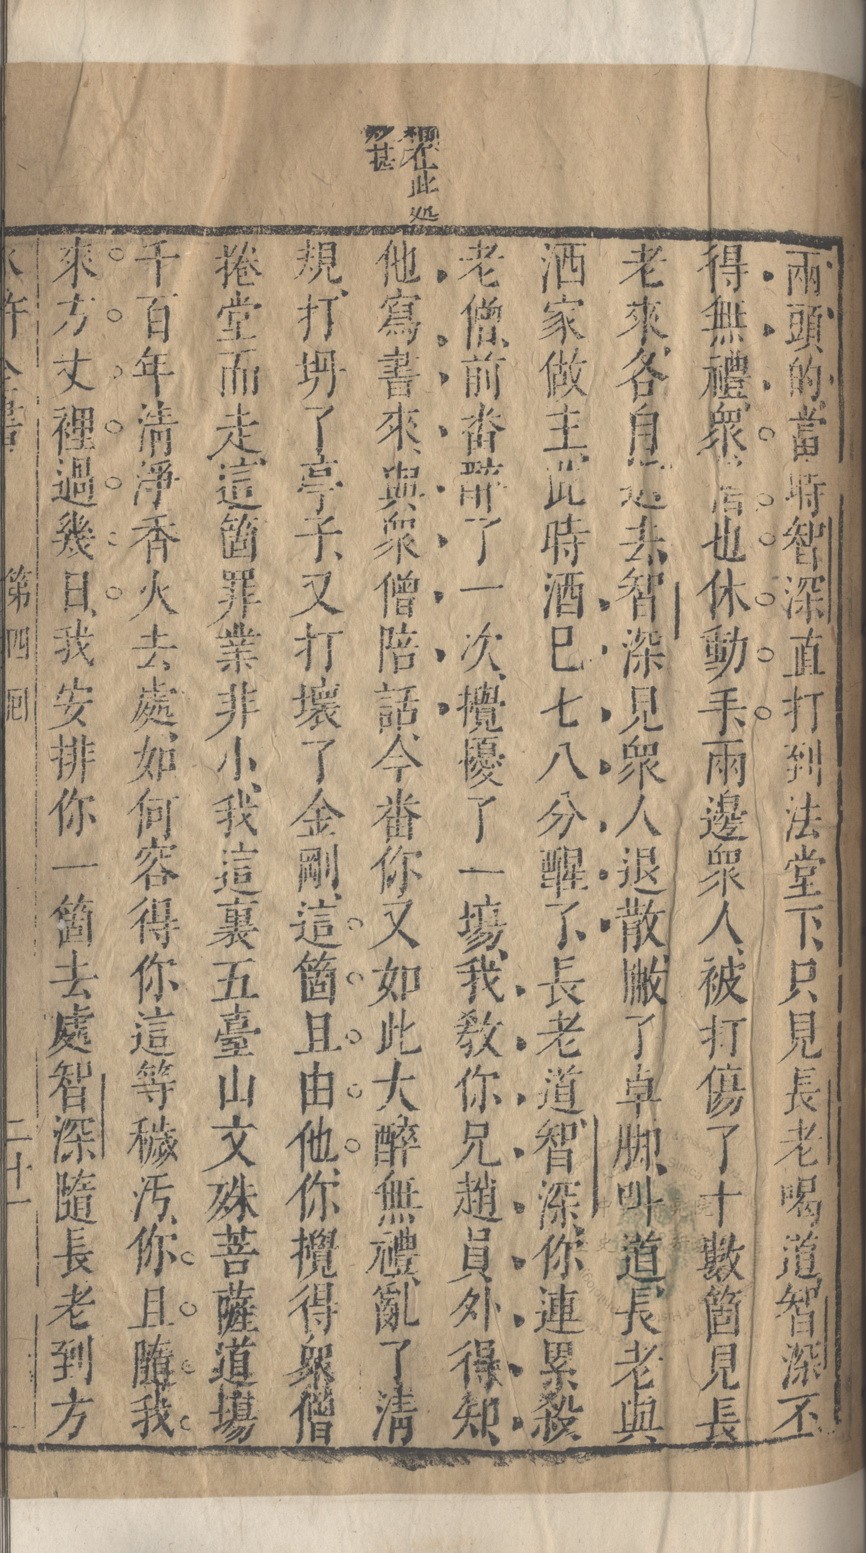 在此処
妙甚
兩頭的當時智深直打到法堂下只見長老喝道智深不
得無禮衆僧也休動手兩邊衆人被打傷了十數箇見長
老來各自退去智深見衆人退散撇了卓脚呌道長老與
洒家做主此時酒已七八分醒了長老道智深你連累殺
老僧前畨醉了一次攪擾了一塲我教你兄趙員外得知
他寫書來與衆僧陪話今畨你又如此大醉無禮亂了清
規打坍了亭子又打壞了金剛這箇且由他你攪得衆僧
捲堂而走這箇罪業非小我這裏五臺山文殊菩薩道塲
千百年清淨香火去處如何容得你這等穢汚你且隨我
來方丈裡過幾日我安排你一箇去處智深隨長老到方
水滸全書 第四囘 二十一